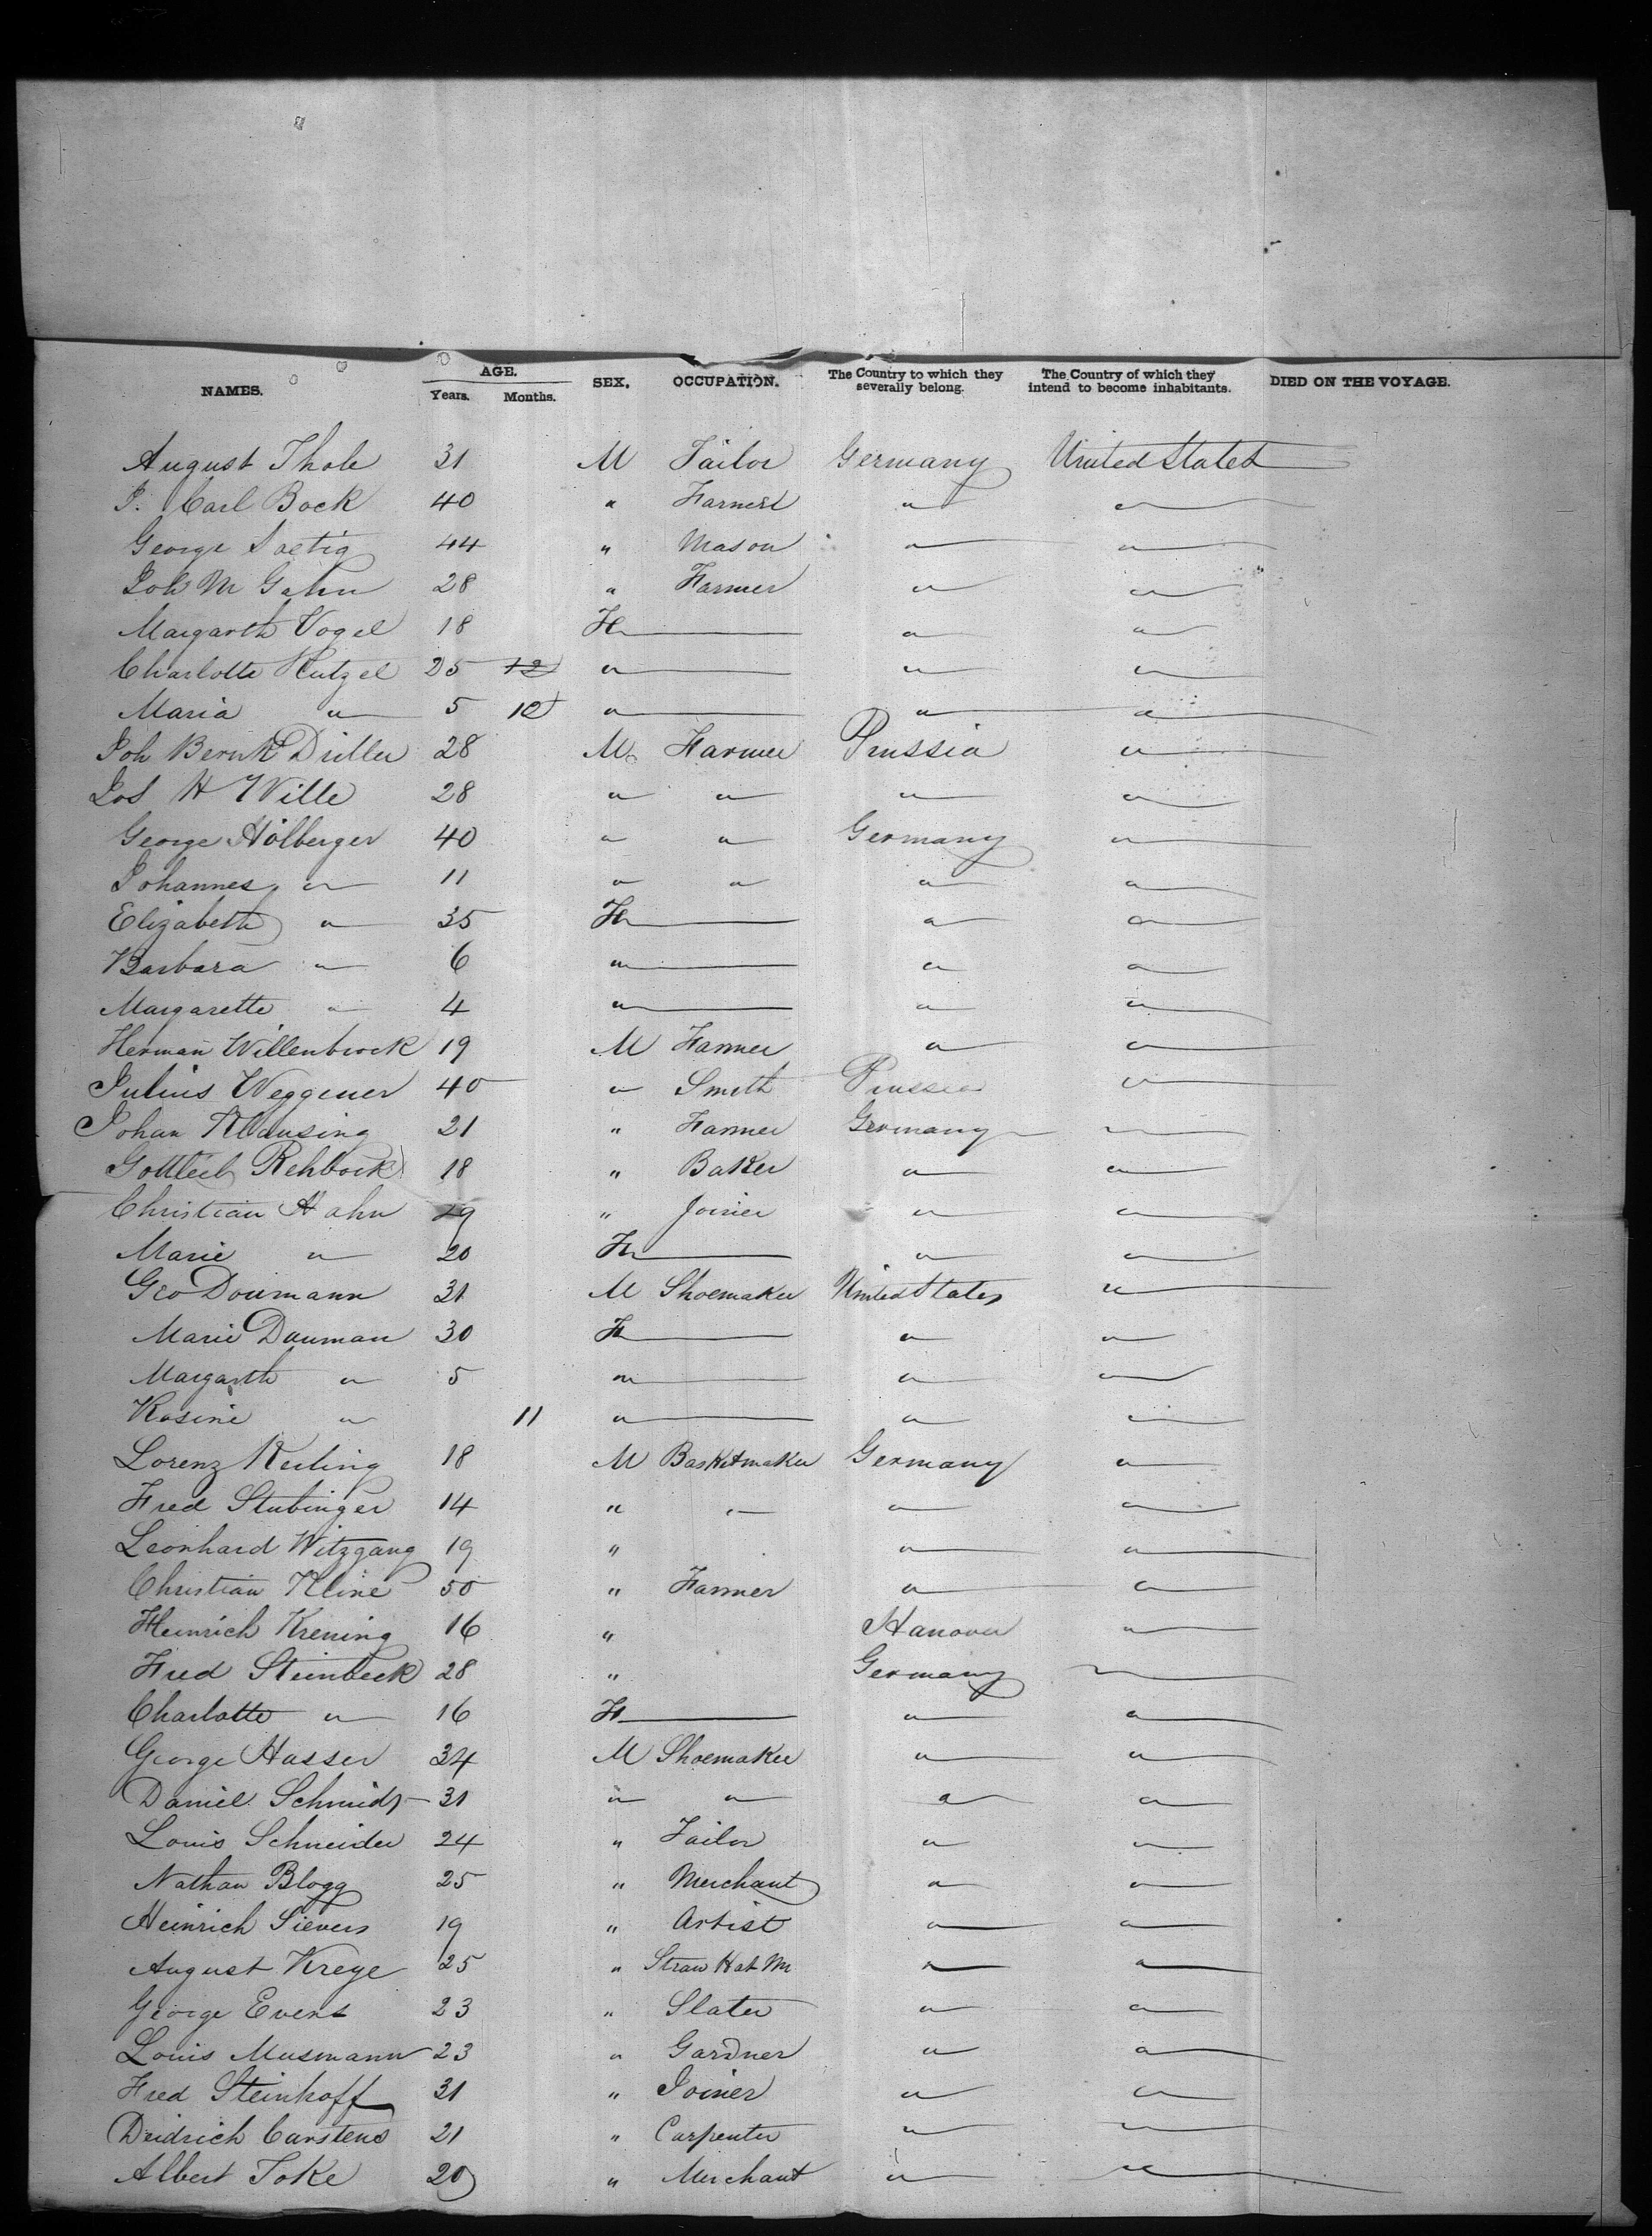 NAMES. AGE. Years. Months. SEX. OCCUPATION. The Country to which they severally belong. The Country of which they intend to become inhabitants. DIED ON THE VOYAGE.
August Thole 31 M Tailor Germany United States
J. Carl Bock 40 " Farmer " "
George 44 " Mason " "
Joh M Gahn 28 " Farmer " "
Margarth Vogel 18 F — " "
Charlotte Hutzel 25 12 " — " "
Maria " 5 10 " — " "
Joh Bernh Driller 28 M Farmer Prussia "
Jos H Wille 28 " " " "
George Holberger 40 " " Germany "
Johannes " 11 " " " "
Elizabeth " 35 F — " "
Barbara " 6 " — " "
Margarette " 4 " — " "
Herman Willenbrock 19 M Farmer " "
Julius Weggener 40 " Smith Prussia "
Johan Klausing 21 " Farmer Germany "
Gottleib Rehbock 18 " Baker " "
Christian Hahn 29 " Joiner " "
Marie " 20 F — " "
Geo Doumann 31 M Shoemaker United States "
Marie Dauman 30 F — " "
Margarth " 5 " — " "
Rosine " 11 " — " "
Lorenz Keiling 18 M Basketmaker Germany "
Fred Stubinger 14 " " " "
Leonhard Witzgang 19 " " "
Christian Kline 50 " Farmer " "
Heinrich Krening 16 " Hanover "
Fred Steinbeck 28 " Germany "
Charlotte " 16 F — " "
George Hasser 34 M Shoemaker " "
Daniel Schmidt 31 " " " "
Louis Schneider 24 " Tailor " "
Nathan Blogg 25 " Merchant " "
Heinrich Sievers 19 " Artist " "
August Kreye 25 " Straw Hat M " "
George Evers 23 " Slater " "
Louis Musmann 23 " Gardner " "
Fred Steinhoff 31 " Joiner " "
Deidrich Carstens 21 " Carpenter " "
Albert Toke 20 " Merchant " "